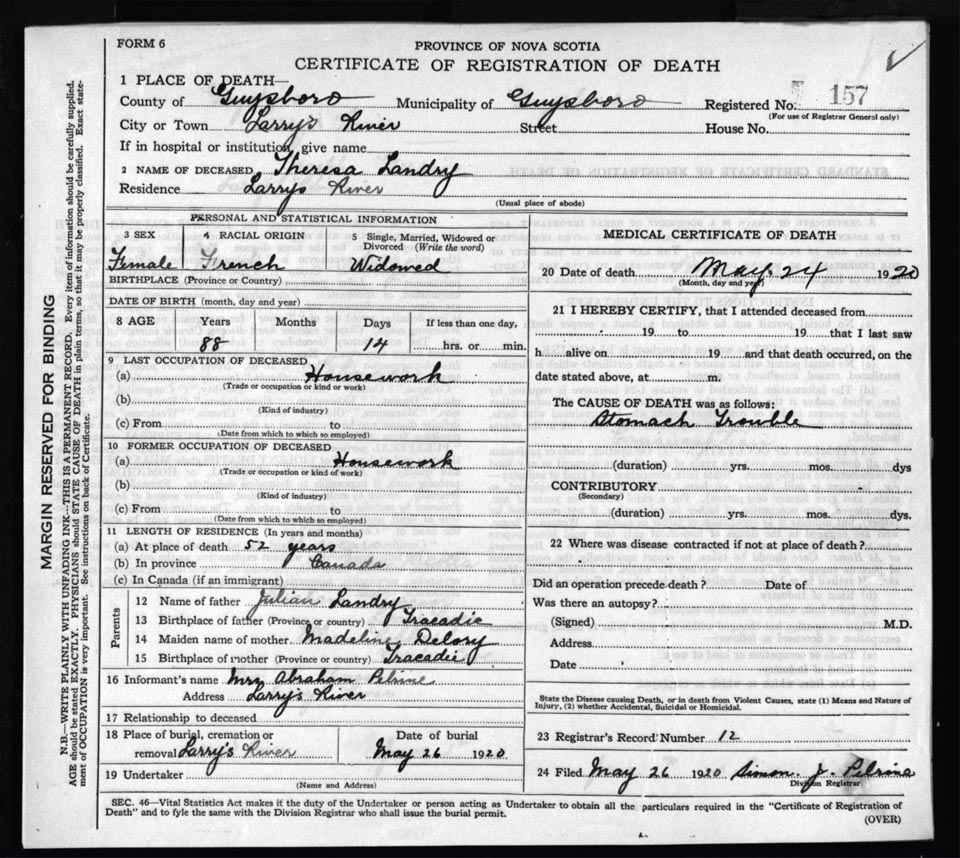 FORM 6
PROVINCE OF NOVA SCOTIA
CERTIFICATE OF REGISTRATION OF DEATH
1 PLACE OF DEATH—
County of Guysboro Municipality of Guysboro Registered No. 157
(For use of Registrar General only)
City or Town Larry's River Street House No.
If in hospital or institution, give name
2 NAME OF DECEASED Theresa Landry
Residence Larrys River
(Usual place of abode)
PERSONAL AND STATISTICAL INFORMATION
3 SEX 4 RACIAL ORIGIN 5 Single, Married, Widowed or Divorced (Write the word)
Female French Widowed
BIRTHPLACE (Province or Country)
DATE OF BIRTH (month, day and year)
8 AGE Years Months Days If less than one day,
88 14 hrs. or min.
9 LAST OCCUPATION OF DECEASED
(a) Housework
(Trade or occupation or kind or work)
(b)
(Kind of industry)
(c) From to
(Date from which to which so employed)
10 FORMER OCCUPATION OF DECEASED
(a) Housework
(Trade or occupation or kind of work)
(b)
(Kind of industry)
(c) From to
(Date from which to which so employed)
11 LENGTH OF RESIDENCE (In years and months)
(a) At place of death 52 years
(b) In province Canada
(c) In Canada (if an immigrant)
Parents
12 Name of father Julian Landry
13 Birthplace of father (Province or country) Tracadie
14 Maiden name of mother Madeline Delory
15 Birthplace of mother (Province or country) Tracadie
16 Informant's name Mrs Abraham Pelrine
Address Larry's River
17 Relationship to deceased
18 Place of burial, cremation or Date of burial
removal Larry's River May 26 1920
19 Undertaker
(Name and Address)
MEDICAL CERTIFICATE OF DEATH
20 Date of death May 24 1920
(Month, day and year)
21 I HEREBY CERTIFY, that I attended deceased from
19 to 19 that I last saw
h alive on 19 and that death occurred, on the
date stated above, at m.
The CAUSE OF DEATH was as follows:
Stomach Trouble
(duration) yrs. mos. dys
CONTRIBUTORY
(Secondary)
(duration) yrs. mos. dys.
22 Where was disease contracted if not at place of death?
Did an operation precede death? Date of
Was there an autopsy?
(Signed) M.D.
Address
Date
State the Disease causing Death, or in death from Violent Causes, state (1) Means and Nature of
Injury, (2) whether Accidental, Suicidal or Homicidal.
23 Registrar's Record Number 12
24 Filed May 26 1920 Simon J. Pelrine
Division Registrar
SEC. 46—Vital Statistics Act makes if the duty of the Undertaker or person acting as Undertaker to obtain all the particulars required in the "Certificate of Registration of
Death" and to fyle the same with the Division Registrar who shall issue the burial permit.
(OVER)
MARGIN RESERVED FOR BINDING
N.B.—WRITE PLAINLY WITH UNFADING INK—THIS IS A PERMANENT RECORD. Every item of information should be carefully supplied.
AGE should be stated EXACTLY. PHYSICIANS should STATE CAUSE OF DEATH in plain terms, so that it may be properly classified. Exact state-
ment of OCCUPATION is very important. See instructions on back of Certificate.